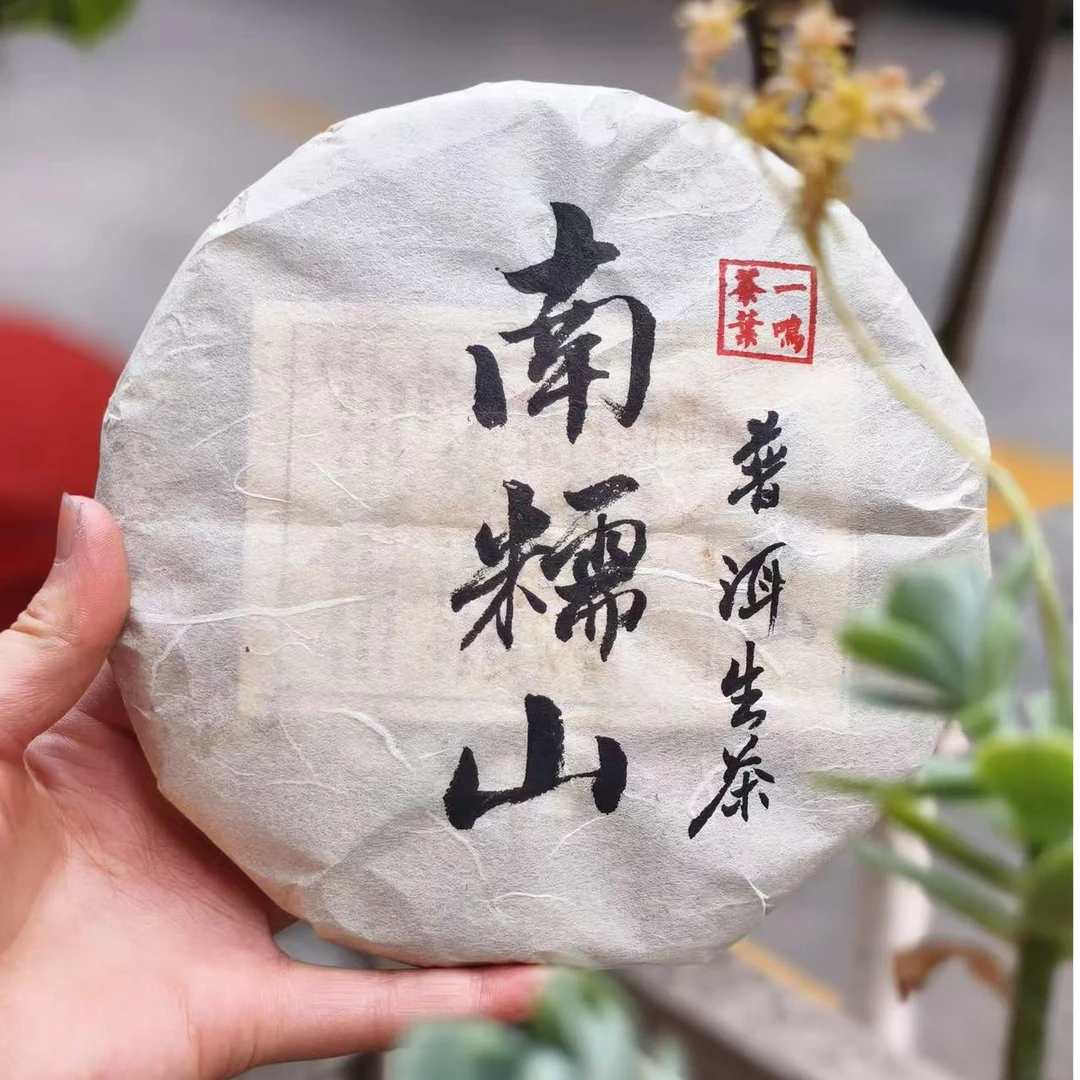 南糯山
一鳴
茶葉
普洱生茶